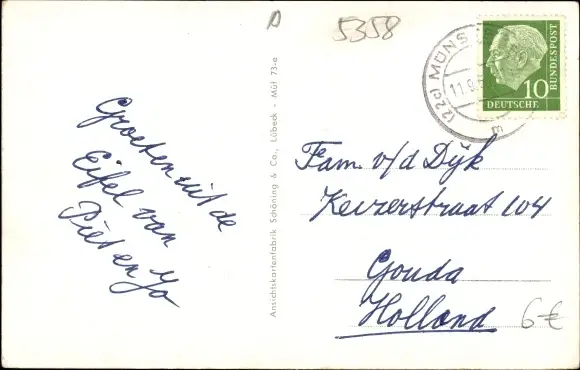 5358
(22c) MÜNS
11.9.5
10
DEUTSCHE
BUNDESPOST
Groeten uit de
Eifel van
Piet en Jo
Ansichtskartenfabrik Schöning & Co., Lübeck - Mül 73-e
Fam. v/d Dyk
Keizerstraat 104
Gouda
Holland
6€